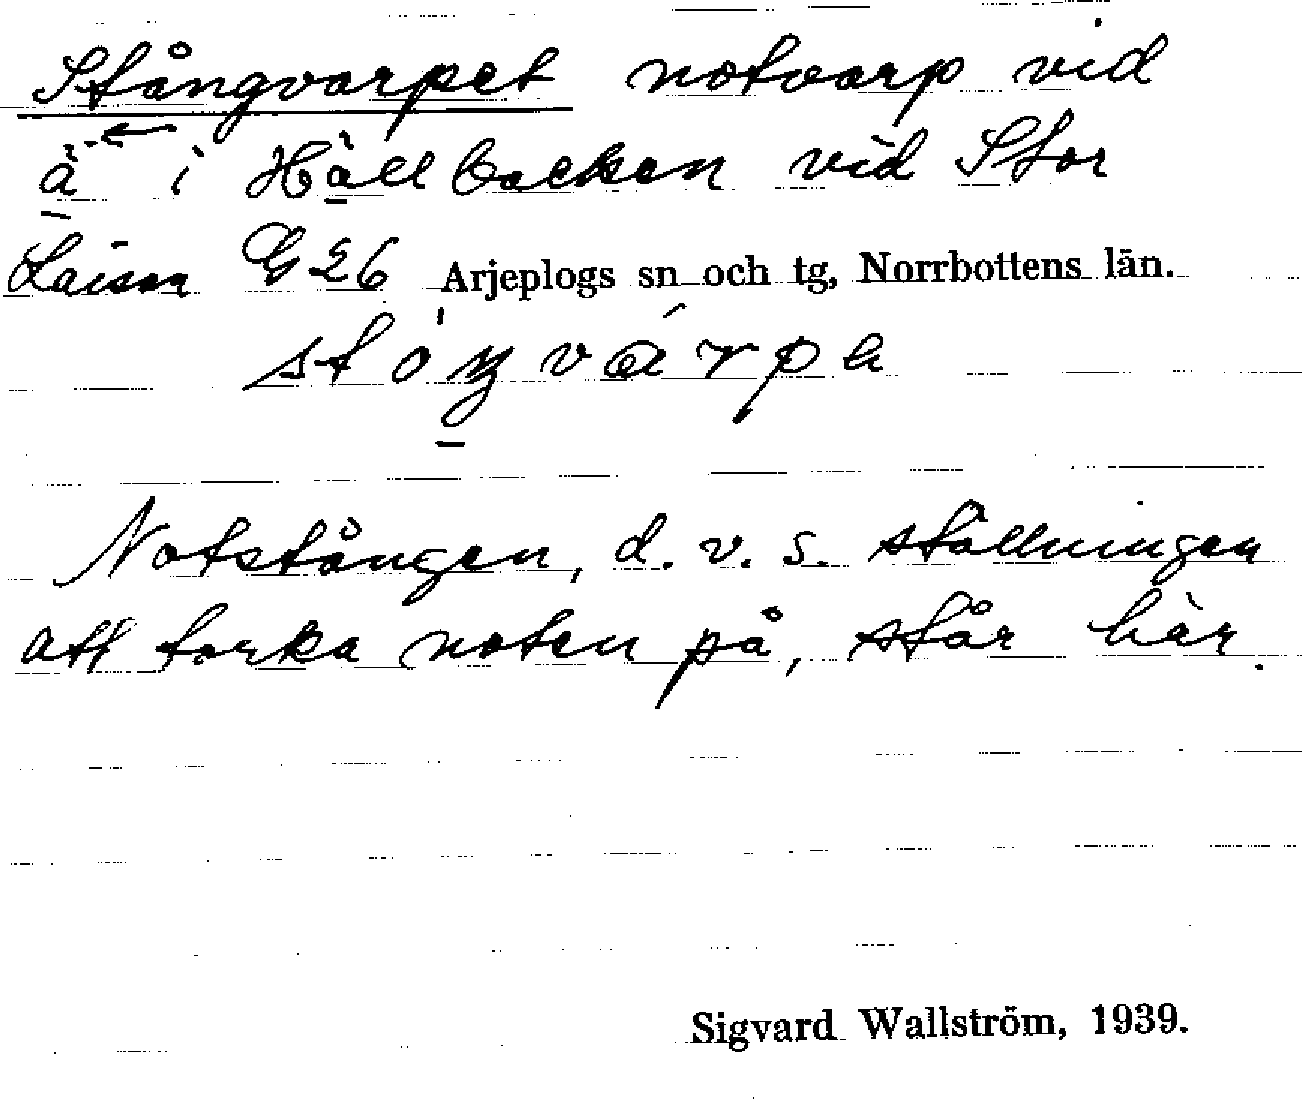 Stångvarpet notvarp vid
ä ← i Hällbacken vid Stor
Laisan G 26 Arjeplogs sn och tg, Norrbottens län.
Notstången, d. v. s. ställningen
att torka noten på, står här.
Sigvard Wallström, 1939.